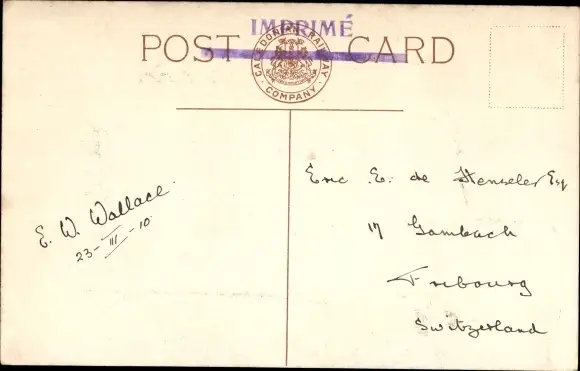 IMPRIMÉ
POST CARD
CALEDONIAN RAILWAY COMPANY
E. W. Wallace.
23-III-10.
Eric E. de Henseler Esq
17 Gambach
Fribourg
Switzerland